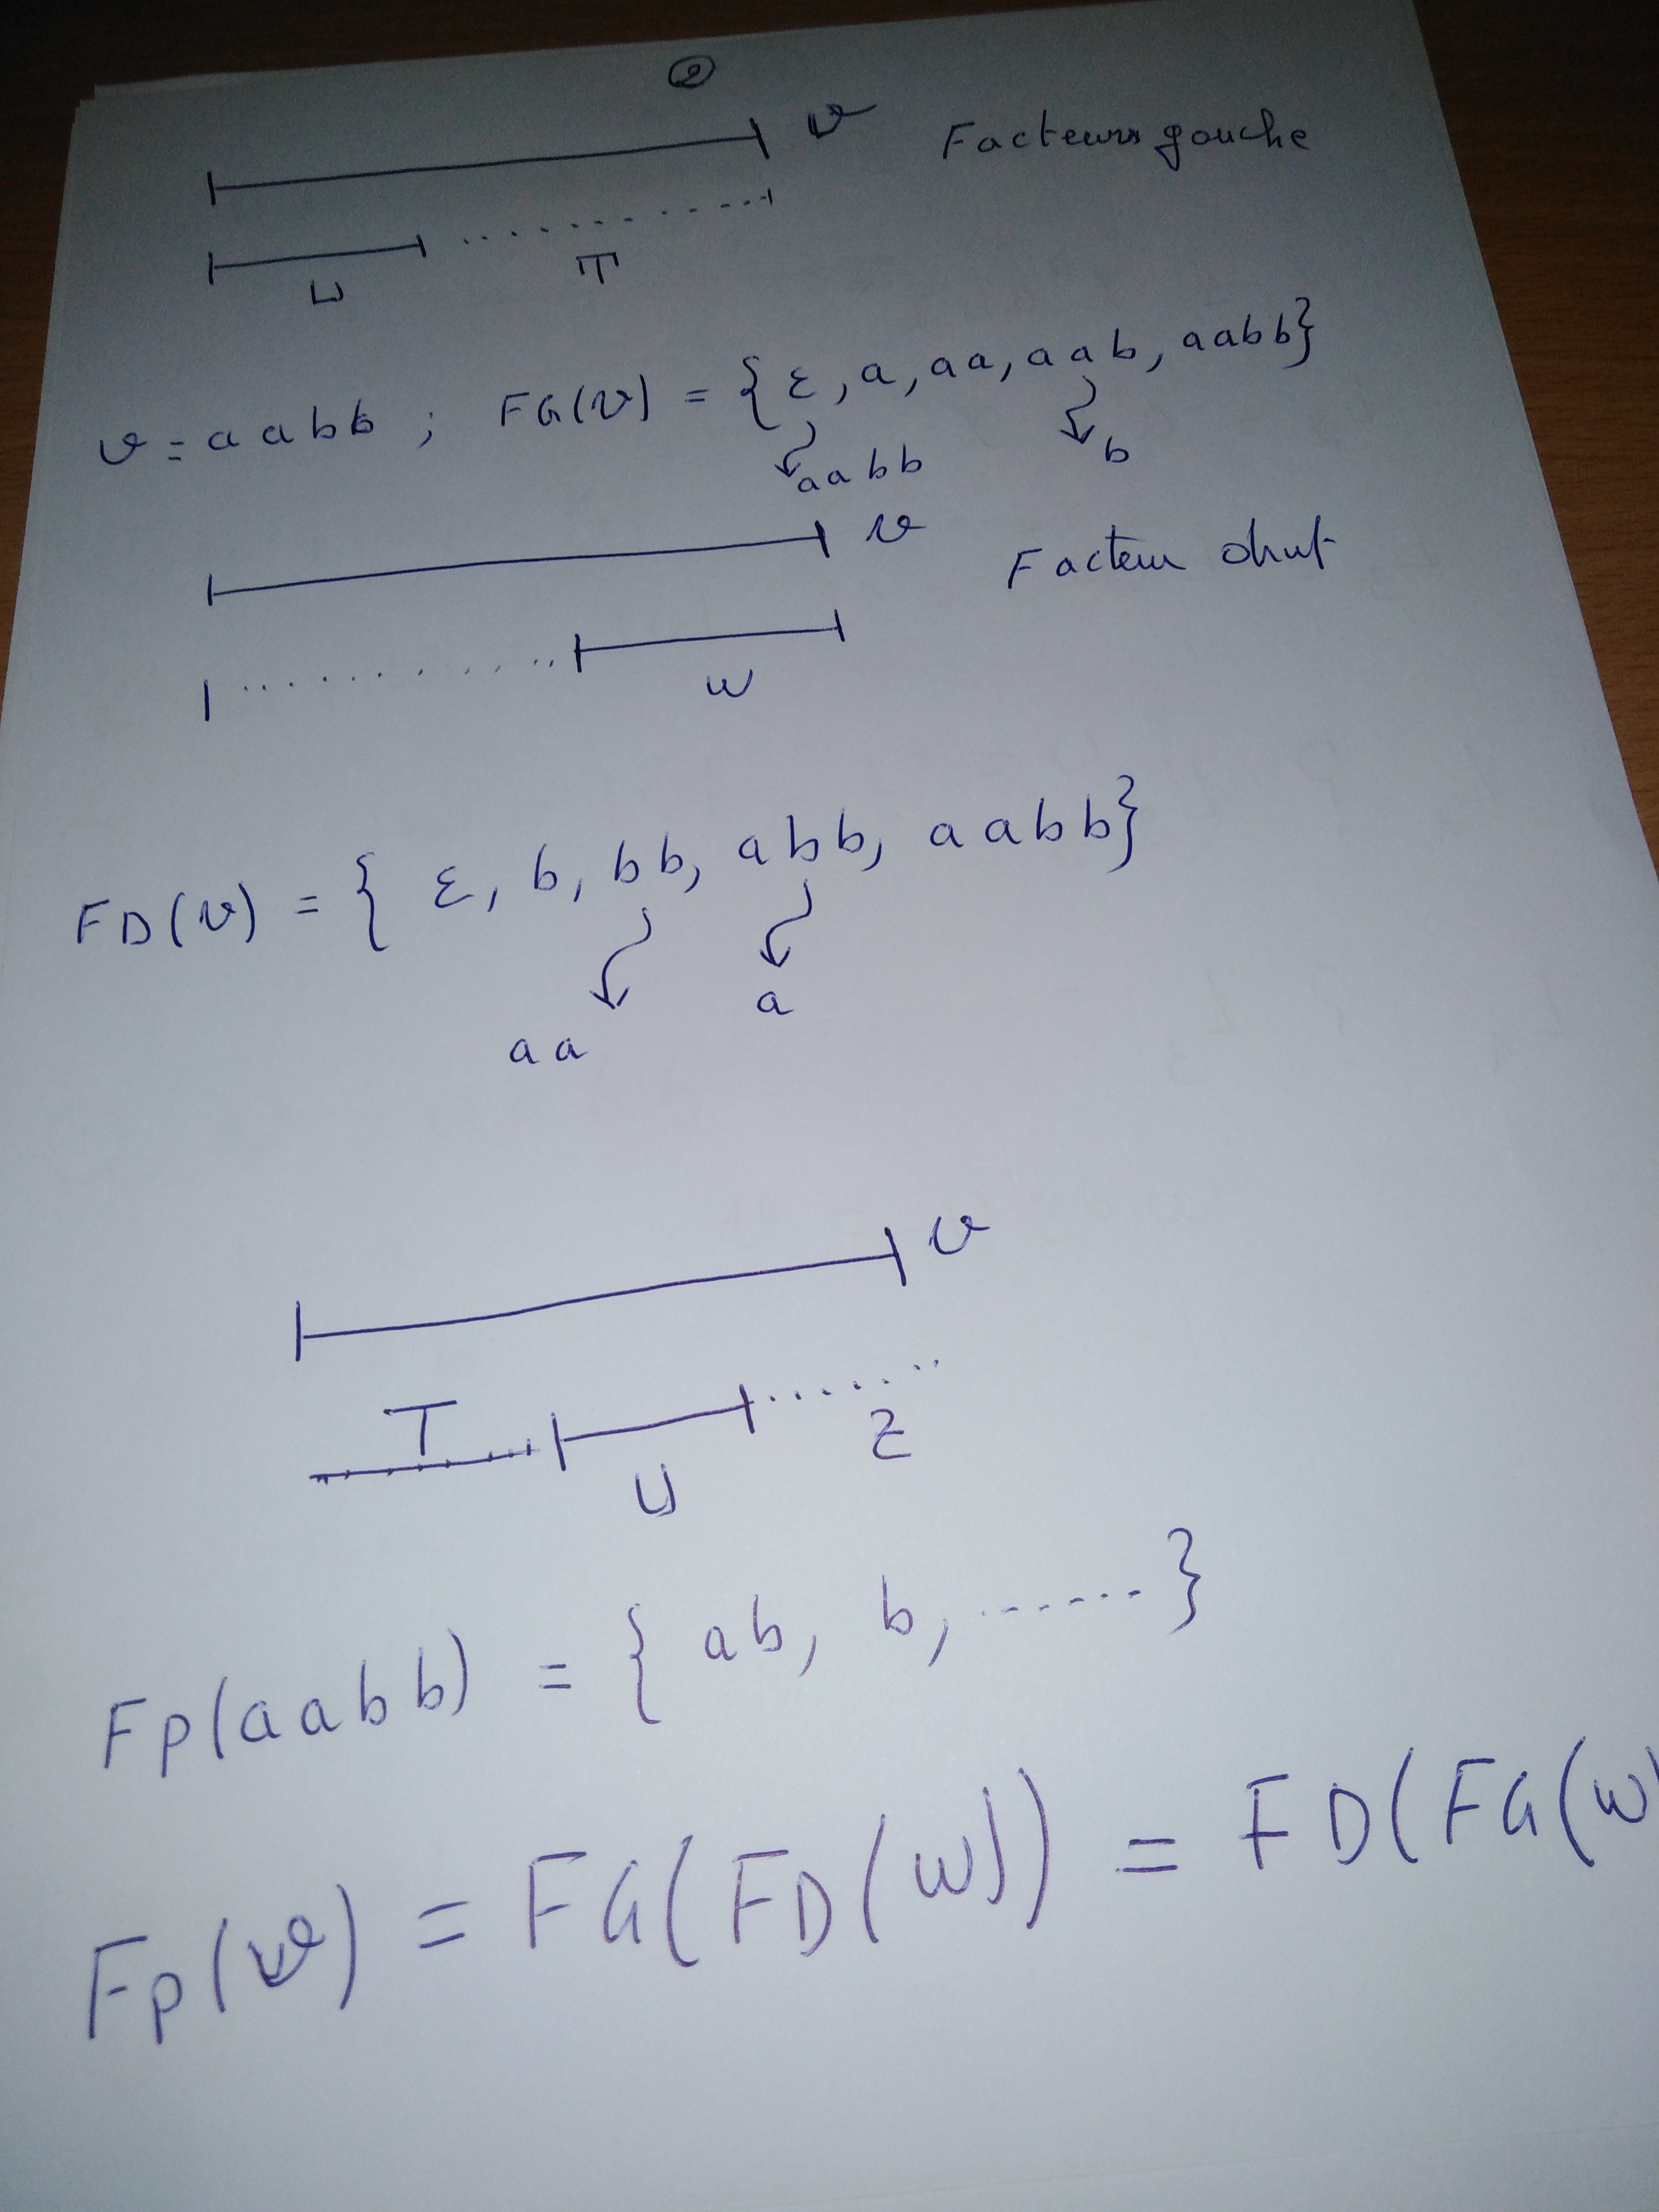 2
v Facteurs gauche
U T
v = aabb ; FG(v) = { ε, a, aa, aab, aabb}
aabb b
v Facteur droit
w
FD(v) = { ε, b, bb, abb, aabb}
aa a
v
T U Z
Fp(aabb) = { ab, b, ....... }
Fp(v) = FG(FD(w)) = FD(FG(w)